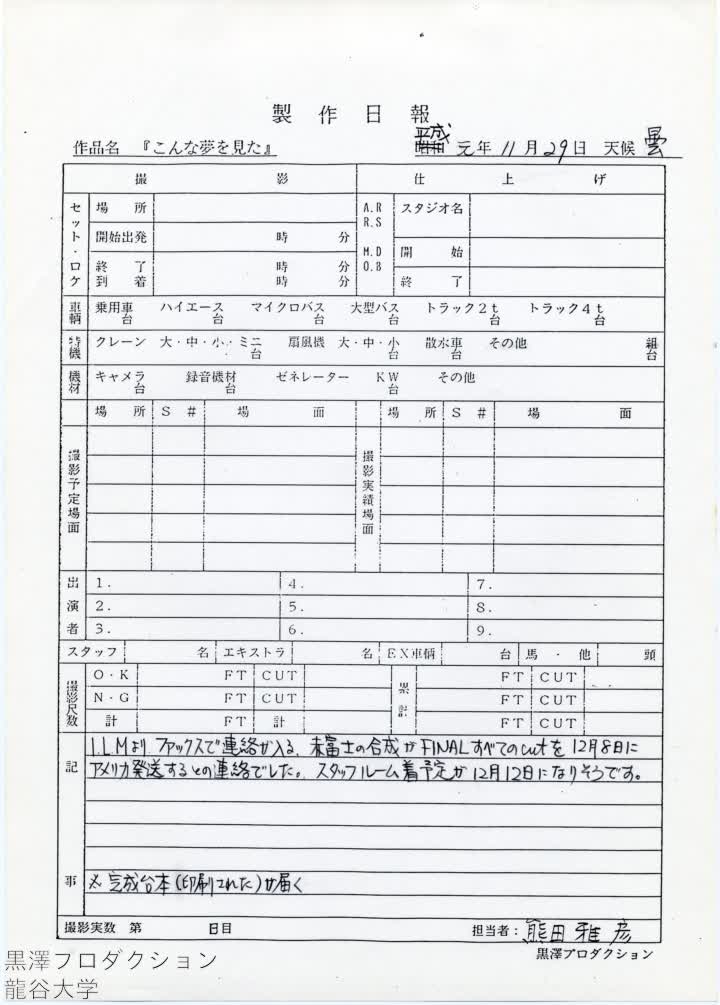 製作日報
作品名 『こんな夢を見た』 平成 昭和 元年 11月29日 天候 曇
撮影 仕上げ
セット・ロケ 場所 A.R R.S スタジオ名
開始出発 時 分 M.D O.B 開始
終了 時 分
到着 時 分 終了
車輌 乗用車 台 ハイエース 台 マイクロバス 台 大型バス 台 トラック2t 台 トラック4t 台
特機 クレーン 大・中・小・ミニ 台 扇風機 大・中・小 台 散水車 台 その他 組 台
機材 キャメラ 台 録音機材 ゼネレーター KW 台 その他
場所 S# 場面 場所 S# 場面
撮影予定場面 撮影実績場面
出演者 1. 4. 7.
2. 5. 8.
3. 6. 9.
スタッフ 名 エキストラ 名 EX車輌 台 馬・他 頭
撮影尺数 O・K FT CUT 累計 FT CUT
N・G FT CUT FT CUT
計 FT 計 FT CUT
記事
I.L.Mよりファックスで連絡が入る。赤富士の合成がFINALすべてのcutを12月8日に
アメリカ発送するとの連絡でした。スタッフルーム着予定が12月12日になりそうです。
※完成台本(印刷された)が届く
撮影実数 第 日目 担当者: 熊田雅彦
黒澤プロダクション
黒澤プロダクション
龍谷大学